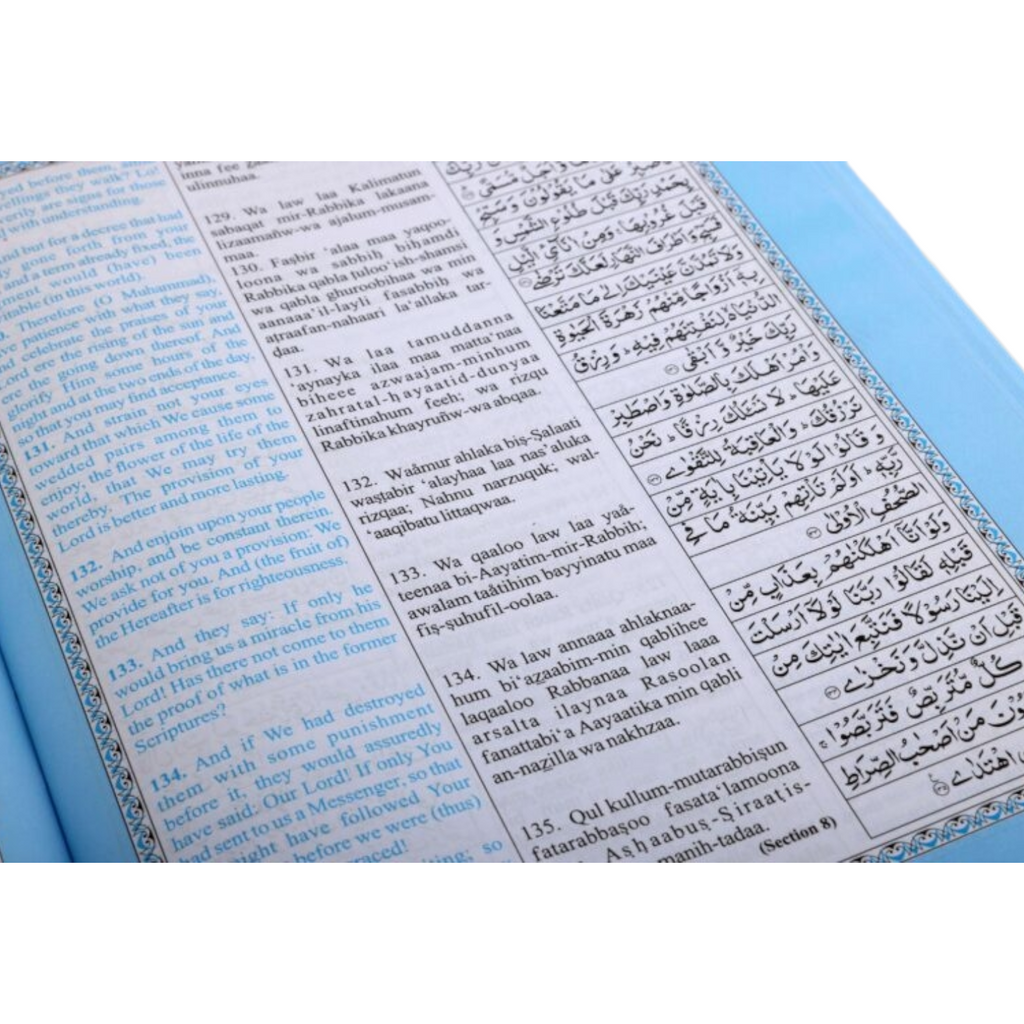 ed before them, amid
yellings they walk? Lo!
verily are signs for those
with understanding.
nd but for a decree that had
y gone forth from your
and a term already fixed, the
ment would (have) been
table (in this world).
Therefore (O Muhammad),
ve patience with what they say,
d celebrate the praises of your
Lord ere the rising of the sun and
ere the going down thereof. And
glorify Him some hours of the
night and at the two ends of the day,
so that you may find acceptance.
131. And strain not your eyes
toward that which We cause some
wedded pairs among them to
enjoy, the flower of the life of the
world, that We may try them
thereby. The provision of your
Lord is better and more lasting.
132. And enjoin upon your people
worship, and be constant therein.
We ask not of you a provision: We
provide for you. And (the fruit of)
the Hereafter is for righteousness.
133. And they say: If only he
would bring us a miracle from his
Lord! Has there not come to them
the proof of what is in the former
Scriptures?
134. And if We had destroyed
them with some punishment
before it, they would assuredly
have said: Our Lord! If only You
had sent to us a Messenger, so that
might have followed Your
before we were (thus)
raced!
iting; so
inna fee
ulinnuhaa.
129. Wa law laa Kalimatun
sabaqat mir-Rabbika lakaana
lizaamañw-wa ajalum-musam-
maa.
130. Faṣbir ‘alaa maa yaqoo-
loona wa sabbiḥ biḥamdi
Rabbika qabla ṭuloo‘ish-shamsi
wa qabla ghuroobihaa wa min
aanaaa’il-layli fasabbiḥ wa
aṭraafan-nahaari la‘allaka tar-
ḍaa.
131. Wa laa tamuddanna
‘aynayka ilaa maa matta‘naa
biheee azwaajam-minhum
zahratal-ḥayaatid-dunyaa
linaftinahum feeh; wa rizqu
Rabbika khayruñw-wa abqaa.
132. Waåmur ahlaka biṣ-Ṣalaati
waṣṭabir ‘alayhaa laa nas’aluka
rizqaa; Nahnu narzuquk; wal-
‘aaqibatu littaqwaa.
133. Wa qaaloo law laa yaå-
teenaa bi-Aayatim-mir-Rabbih;
awalam taåtihim bayyinatu maa
fiṣ-ṣuhufil-oolaa.
134. Wa law annaaa ahlaknaa-
hum bi‘aẕaabim-min qablihee
laqaaloo Rabbanaa law laaa
arsalta ilaynaa Rasoolan
fanattabi‘a Aayaatika min qabli
an-naẕilla wa nakhzaa.
135. Qul kullum-mutarabbiṣun
fatarabbaṣoo fasata‘lamoona
Aṣḥaabuṣ-Ṣiraaṭis-
manih-tadaa.
(Section 8)
وَّاَجَلٌ مُّسَمًّى
فَاصْبِرْ عَلٰى مَا يَقُوْلُوْنَ وَسَبِّحْ
بِحَمْدِ رَبِّكَ قَبْلَ طُلُوْعِ الشَّمْسِ وَ
قَبْلَ غُرُوْبِهَا ۚ وَمِنْ اٰنَآئِ الَّيْلِ
فَسَبِّحْ وَاَطْرَافَ النَّهَارِ لَعَلَّكَ تَرْضٰى
وَلَا تَمُدَّنَّ عَيْنَيْكَ اِلٰى مَا مَتَّعْنَا
بِهٖٓ اَزْوَاجًا مِّنْهُمْ زَهْرَةَ الْحَيٰوةِ
الدُّنْيَا ەۙ لِنَفْتِنَهُمْ فِيْهِ ؕ وَرِزْقُ
رَبِّكَ خَيْرٌ وَّاَبْقٰى
وَاْمُرْ اَهْلَكَ بِالصَّلٰوةِ وَاصْطَبِرْ
عَلَيْهَا ؕ لَا نَسْـَٔلُكَ رِزْقًا ؕ نَحْنُ
نَرْزُقُكَ ؕ وَالْعَاقِبَةُ لِلتَّقْوٰى
وَقَالُوْا لَوْلَا يَاْتِيْنَا بِاٰيَةٍ مِّنْ
رَّبِّهٖ ؕ اَوَلَمْ تَاْتِهِمْ بَيِّنَةُ مَا فِى
الصُّحُفِ الْاُوْلٰى
وَلَوْ اَنَّآ اَهْلَكْنٰهُمْ بِعَذَابٍ مِّنْ
قَبْلِهٖ لَقَالُوْا رَبَّنَا لَوْلَآ اَرْسَلْتَ
اِلَيْنَا رَسُوْلًا فَنَتَّبِعَ اٰيٰتِكَ مِنْ
قَبْلِ اَنْ نَّذِلَّ وَنَخْزٰى
كُلٌّ مُّتَرَبِّصٌ فَتَرَبَّصُوْا ۚ
مَنْ اَصْحٰبُ الصِّرَاطِ
اهْتَدٰى